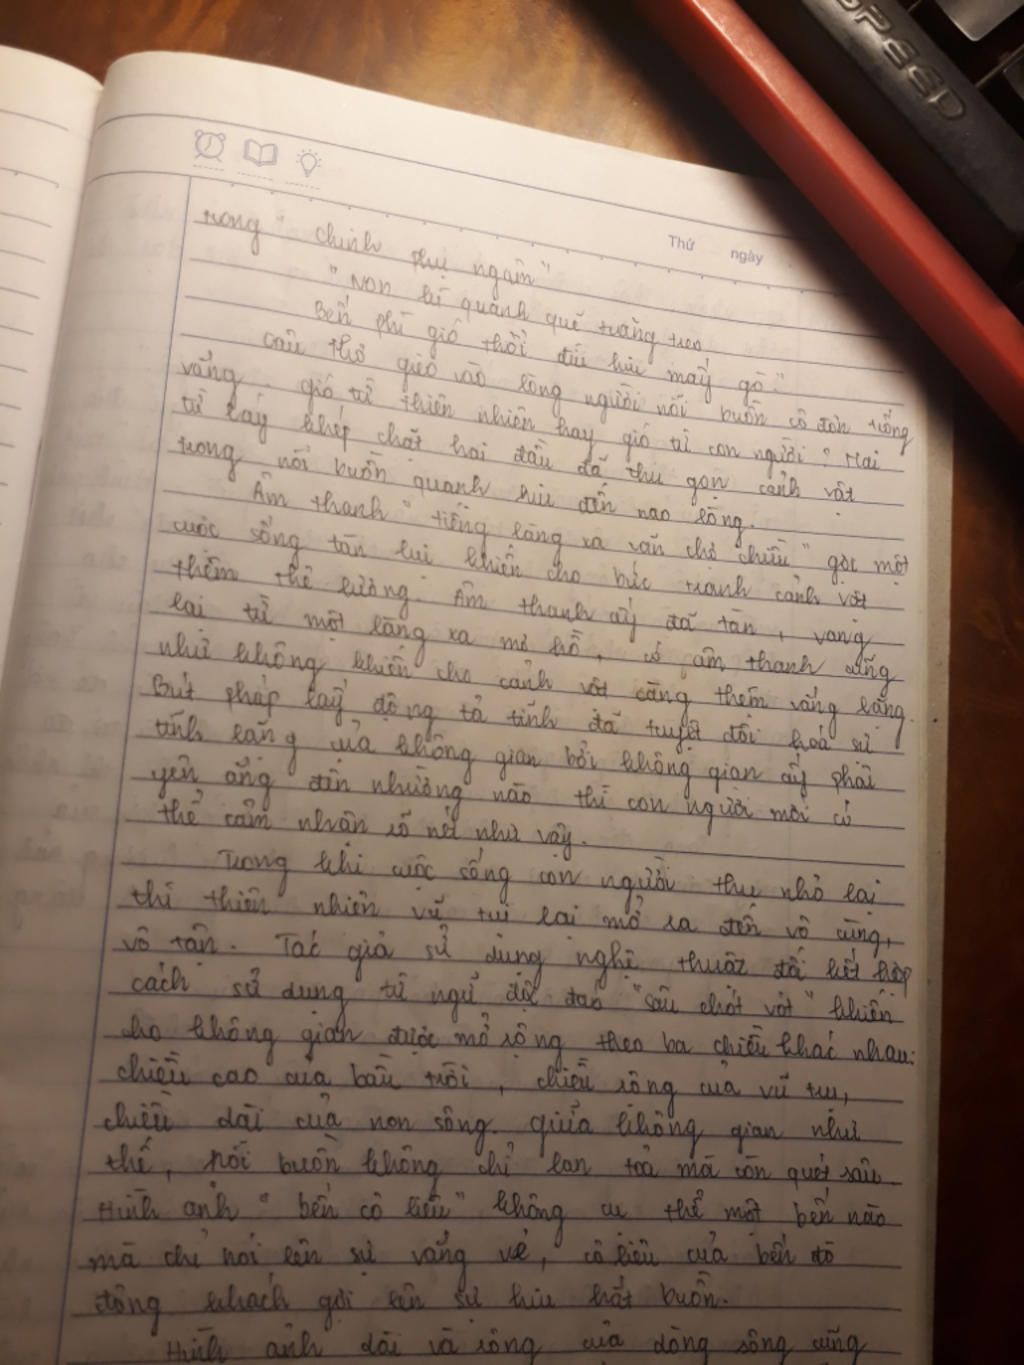 SPEED
Thứ ngày
trong "chinh phụ ngâm"
"Non kì quạnh quẽ trăng treo
Bến phì gió thổi đìu hiu mấy gò."
Câu thơ gieo vào lòng người nỗi buồn cô đơn trống
vắng. gió từ thiên nhiên hay gió từ con người? Hai
từ láy khép chặt hai đầu đã thu gọn cảnh vật
trong nỗi buồn quạnh hiu đến nao lòng.
Âm thanh "tiếng làng xa vãn chợ chiều" gợi một
cuộc sống tàn lụi khiến cho bức tranh cảnh vật
thêm thê lương. Âm thanh ấy đã tàn, vang
lại từ một làng xa mơ hồ, có âm thanh cũng
như không khiến cho cảnh vật càng thêm vắng lặng.
Bút pháp lấy động tả tĩnh đã tuyệt đối hoá sự
tĩnh lặng của không gian bởi không gian ấy phải
yên ắng đến nhường nào thì con người mới có
thể cảm nhận rõ nét như vậy.
Trong khi cuộc sống con người thu nhỏ lại
thì thiên nhiên vũ trụ lại mở ra đến vô cùng,
vô tận. Tác giả sử dụng nghệ thuật đối kết hợp
cách sử dụng từ ngữ độc đáo "sâu chót vót" khiến
cho không gian được mở rộng theo ba chiều khác nhau:
chiều cao của bầu trời, chiều rộng của vũ trụ,
chiều dài của non sông. giữa không gian như
thế, nỗi buồn không chỉ lan toả mà còn quét sâu.
Hình ảnh "bến cô liêu" không cụ thể một bến nào
mà chỉ nói lên sự vắng vẻ, cô liêu của bến đò
đông khách gợi lên sự hiu hắt buồn.
Hình ảnh dài và rộng của dòng sông cũng